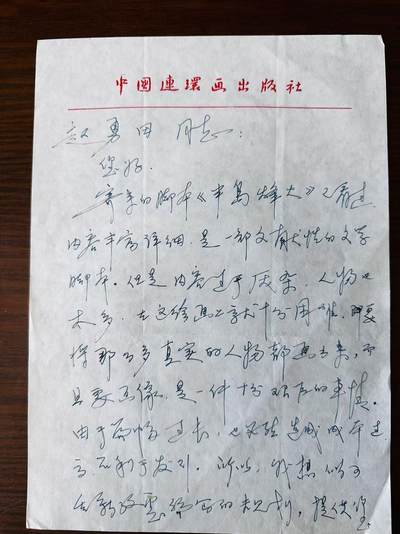 中國連環画出版社
赵勇田同志：
您好。
寄来的脚本《半岛烽火》已看过，
内容丰富详细，是一部文献性的文学
脚本。但是内容过于庞杂，人物也
太多，在这绘画上就十分困难，要
将那么多真实的人物都画出来，而
且要画像，是一件十分艰巨的事情。
由于篇幅过长，也可能造成成本过
高不利于发行。所以，我想似可